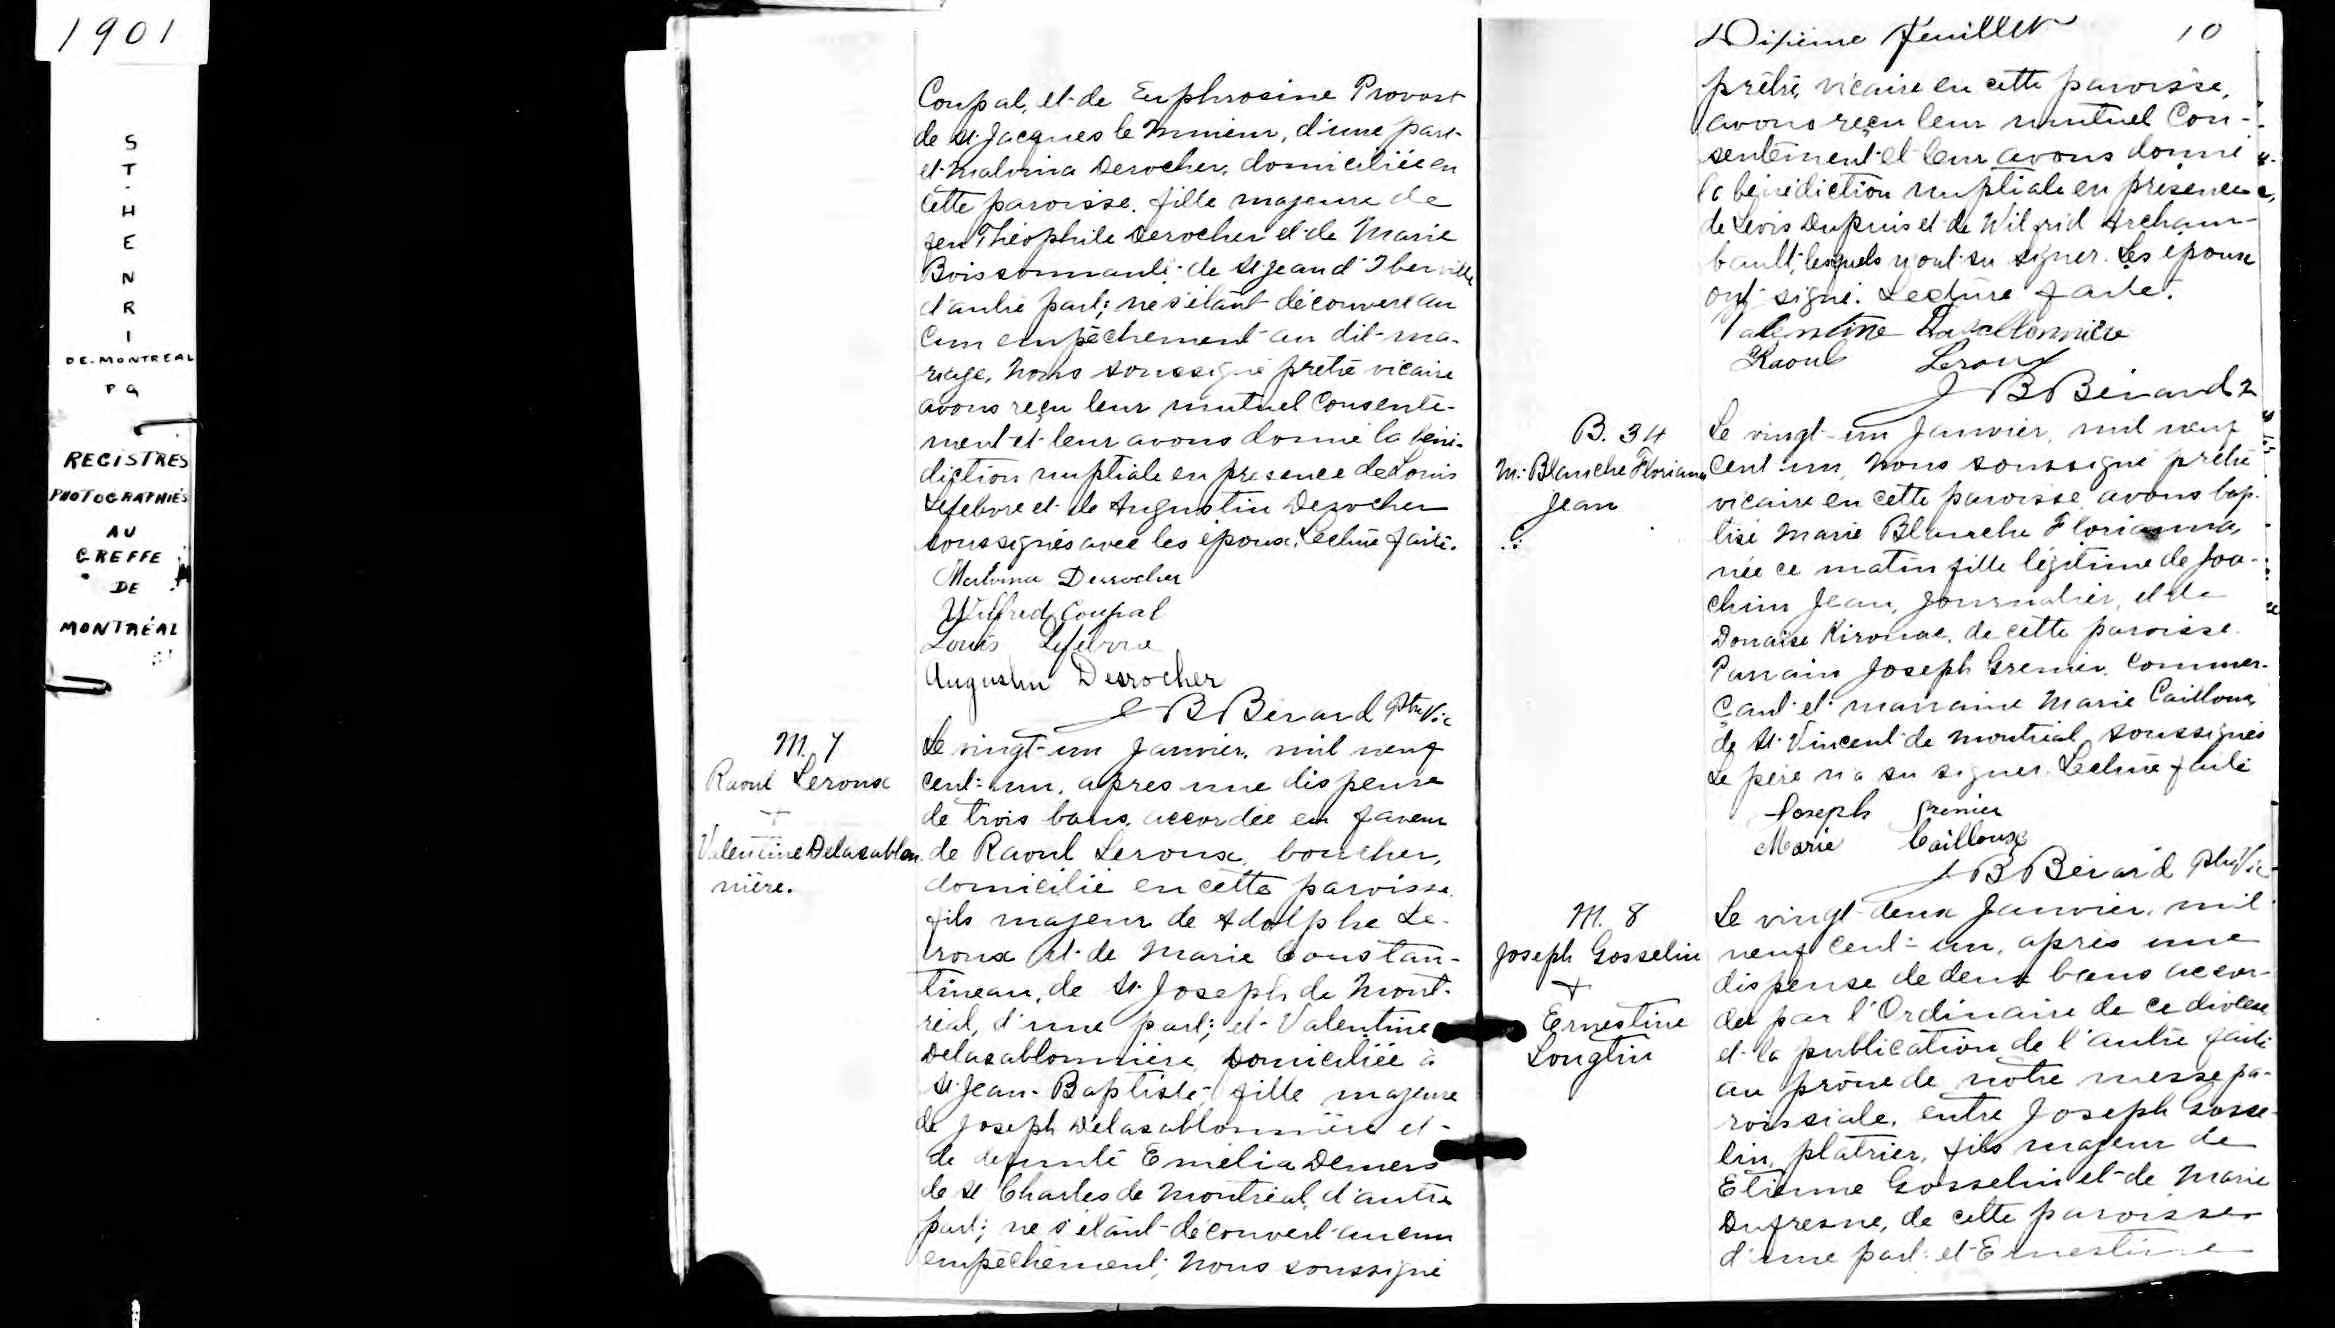 1901
ST-HENRI
DE-MONTREAL
P Q
REGISTRES
PHOTOGRAPHIÉS
AU
GREFFE
DE
MONTRÉAL
Coupal, et de Euphrosine Provost
de St Jacques le Mineur, d'une part
et Malvina Derocher, domiciliée en
cette paroisse, fille majeure de
feu Théophile Derocher et de Marie
Boissonnault de St Jean d'Iberville
d'autre part; ne s'étant découvert au
cun empêchement au dit ma-
riage, Nous soussigné prêtre vicaire
avons reçu leur mutuel consente-
ment et leur avons donné la béné-
diction nuptiale en présence de Louis
Lefebvre et de Augustin Derocher
soussignés avec les époux. Lecture faite.
Malvina Desrocher
Wilfred Coupal
Louis Lefebvre
Augustin Desrocher
J B Bérard Ptre Vic
M. 7
Raoul Leroux
+
Valentine Delasablon
nière.
Le vingt-un Janvier, mil neuf
cent-un, après une dispense
de trois bans, accordée en faveur
de Raoul Leroux, boucher,
domicilié en cette paroisse,
fils majeur de Adolphe Le-
roux et de Marie Constan-
tineau, de St Joseph de Mont-
réal, d'une part; et Valentine
Delasablonnière, Domiciliée à
St Jean-Baptiste, fille majeure
de Joseph Delasablonnière et
de défunte Emélia Demers
de St Charles de Montréal, d'autre
part; ne s'étant découvert aucun
empêchement; Nous soussigné
Dixième feuillet 10
prêtre, vicaire en cette paroisse,
avons reçu leur mutuel Con-
sentement et leur avons donné
la bénédiction nuptiale en présence
de Levis Dupuis et de Wilfrid Archam-
bault, lesquels n'ont su signer. Les époux
ont signé. Lecture faite.
Valentine Delasablonnière
Raoul Leroux
J B Bérard
B. 34
M. Blanche Florianna
Jean
Le vingt-un Janvier, mil neuf
cent-un, Nous soussigné prêtre
vicaire en cette paroisse avons bap-
tisé Marie Blanche Florianna,
née ce matin fille légitime de Joa-
chim Jean, journalier, et de
Donaise Kirouac, de cette paroisse.
Parrain Joseph Grenier, Commer-
çant et marraine Marie Cailloux
de St Vincent de Montréal, soussignés
Le père n'a su signer. Lecture faite
Joseph Grenier
Marie Cailloux
J B Bérard Ptre Vic
M. 8
Joseph Gosselin
+
Ernestine
Longtin
Le vingt-deux Janvier, mil
neuf cent-un, après une
dispense de deux bans accor-
dée par l'Ordinaire de ce diocèse
et la publication de l'autre faite
au prône de notre messe pa-
roissiale, entre Joseph Gosse-
lin, platrier, fils majeur de
Etienne Gosselin et de Marie
Dufresne, de cette paroisse
d'une part: et Ernestine